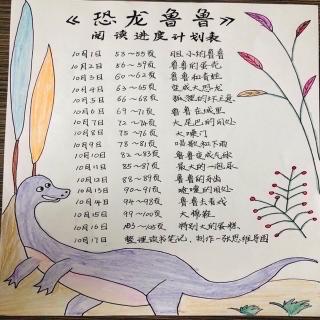 《恐龙鲁鲁》
阅读进度计划表
10月1日 53—55页 胆小的鲁鲁
10月2日 56—59页 鲁鲁的蛋壳
10月3日 60—62页 鲁鲁和青蛙
10月4日 63—65页 变成大恐龙
10月5日 66—68页 狐狸的坏主意
10月6日 69—71页 鲁鲁在城里
10月7日 72—74页 大尾巴的用处
10月8日 75—76页 大嗓门
10月9日 78—81页 唱歌和下雨
10月10日 82—83页 鲁鲁变成气球
10月11日 85—87页 最大的一泡尿
10月12日 88—89页 鲁鲁的牙齿
10月13日 90—91页 喷嚏的用处
10月14日 94—98页 鲁鲁去看戏
10月15日 99—100页 大棉鞋
10月16日 103—105页 特别大的蛋糕
10月17日 整理读书笔记，制作一张思维导图